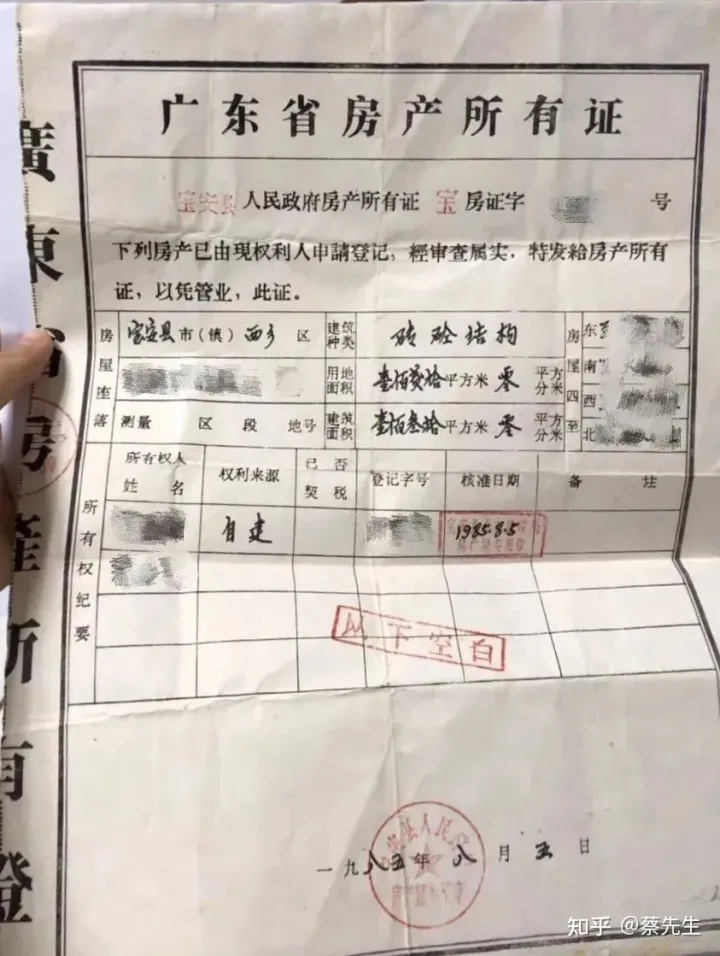 广东省房产所有证
宝安县人民政府房产所有证 宝 房证字 号
下列房产已由现权利人申請登记，經审查属实，特发給房产所有
证，以凭管业，此证。
房屋座落 宝安县市（镇）西乡 区
测量 区 段 地号
建筑种类 砖砼结构
用地面积 壹佰贰拾平方米零 平方分米
建筑面积 壹佰叁拾平方米零 平方分米
房屋四至 东 南 西 北
所有权纪要
所有权人姓名 权利来源 已否契税 登记字号 核准日期 备註
自建 1985.8.5
以下空白
一九八五年八月五日
知乎 @蔡先生